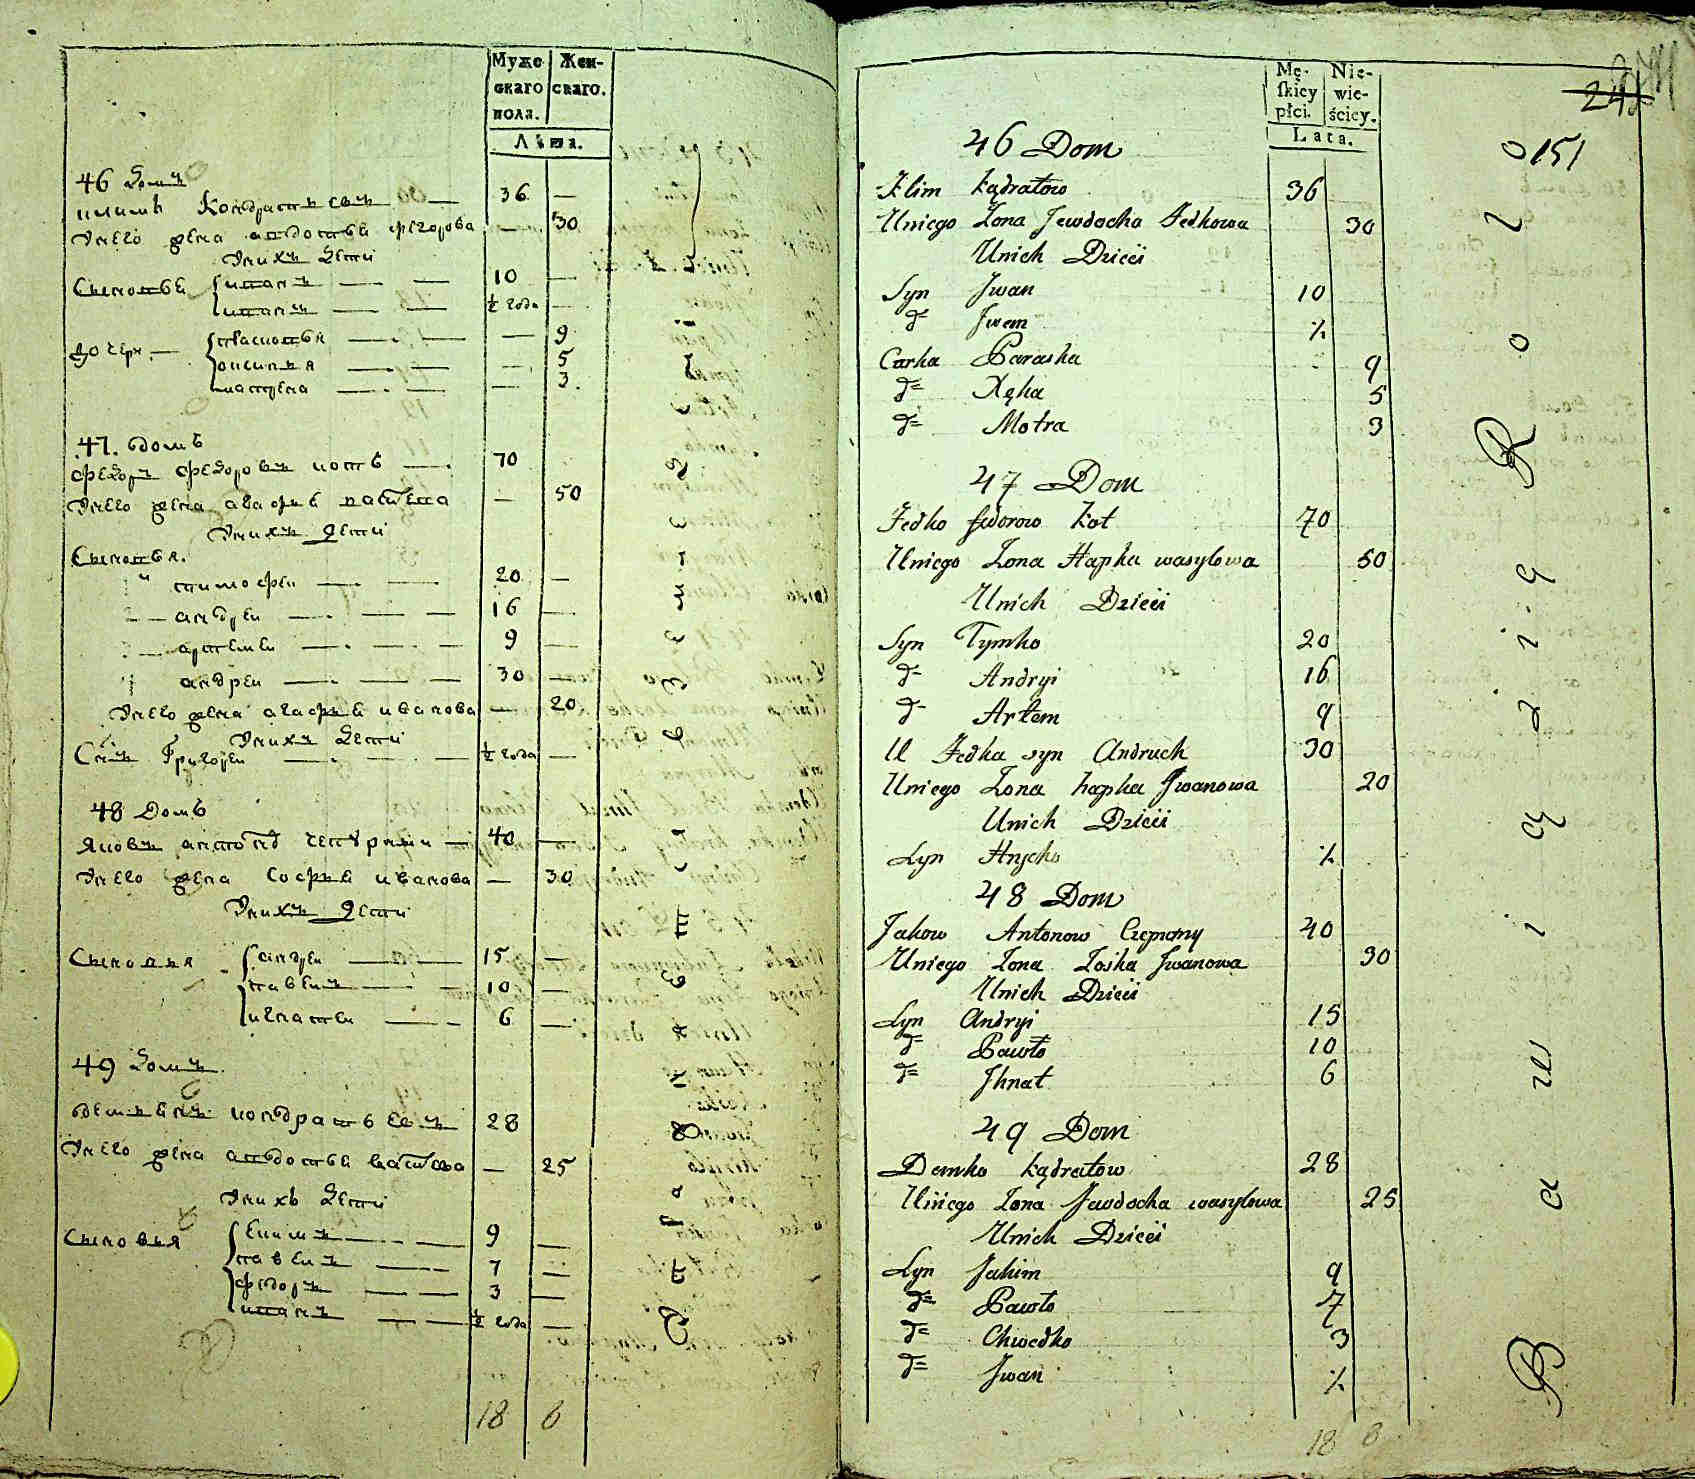 Муже
скаго
пола.
Жен-
скаго.
Лѣта.
46 Домъ
Климъ Кондратьевъ — 36 —
У него жена Авдотья Федорова — 30
У нихъ Дети
Сыновья Иванъ — — 10 —
Иванъ — — ½ года —
Дочери — Парасковья — — — 9
— — — 5
Мастрена — — — 3
47. Домъ
Федоръ Федоровъ Котъ — 70
У него жена Агафья Васильева — 50
У нихъ Дети
Сыновья.
Тимофеи — — 20 —
Андреи — — — 16 —
Артемеи — — — 9 —
Андреи — — — 30 —
У него жена Агафья Иванова — 20
У нихъ Дети
Сынъ Григореи — — — ½ года —
48 Домъ
Яковъ Антонов — 40 —
У него жена Софья Иванова — 30
У нихъ Дети
Сыновья Андреи — — 15 —
Павелъ — — 10 —
Игнатеи — — 6 —
49 Домъ
Демьянъ Кондратьевъ 28
У него жена Авдотья — 25
У нихъ Дети
Сыновья Екимъ — — 9 —
Павелъ — — 7 —
Федоръ — — 3 —
Иванъ — — ½ года —
18 6
Mę-
skiey
płci.
Nie-
wie-
ściey.
Lata.
241
151
46 Dom
Klim Kądratow 36
U niego Żona Jewdocha Fedkowa 30
U nich Dzieci
Syn Jwan 10
d= Jwan ½
Corka Paraska 9
d= Xęka 5
d= Motra 3
47 Dom
Fedko fedorow Kot 70
U niego Żona Hapka wasylowa 50
U nich Dzieci
Syn Tymko 20
d= Andryi 16
d= Artem 9
U Fedka syn Andruch 30
U niego Żona hapka Jwanowa 20
U nich Dzieci
Syn Hrycko ½
48 Dom
Jakow Antonow 40
U niego Żona Zośka Jwanowa 30
U nich Dzieci
Syn Andryi 15
d= Pawło 10
d= Jhnat 6
49 Dom
Demko Kądratow 28
U niego Żona Jewdocha wasylowa 25
U nich Dzieci
Syn Jakim 9
d= Pawło 7
d= Chwedko 3
d= Jwan ½
18 8